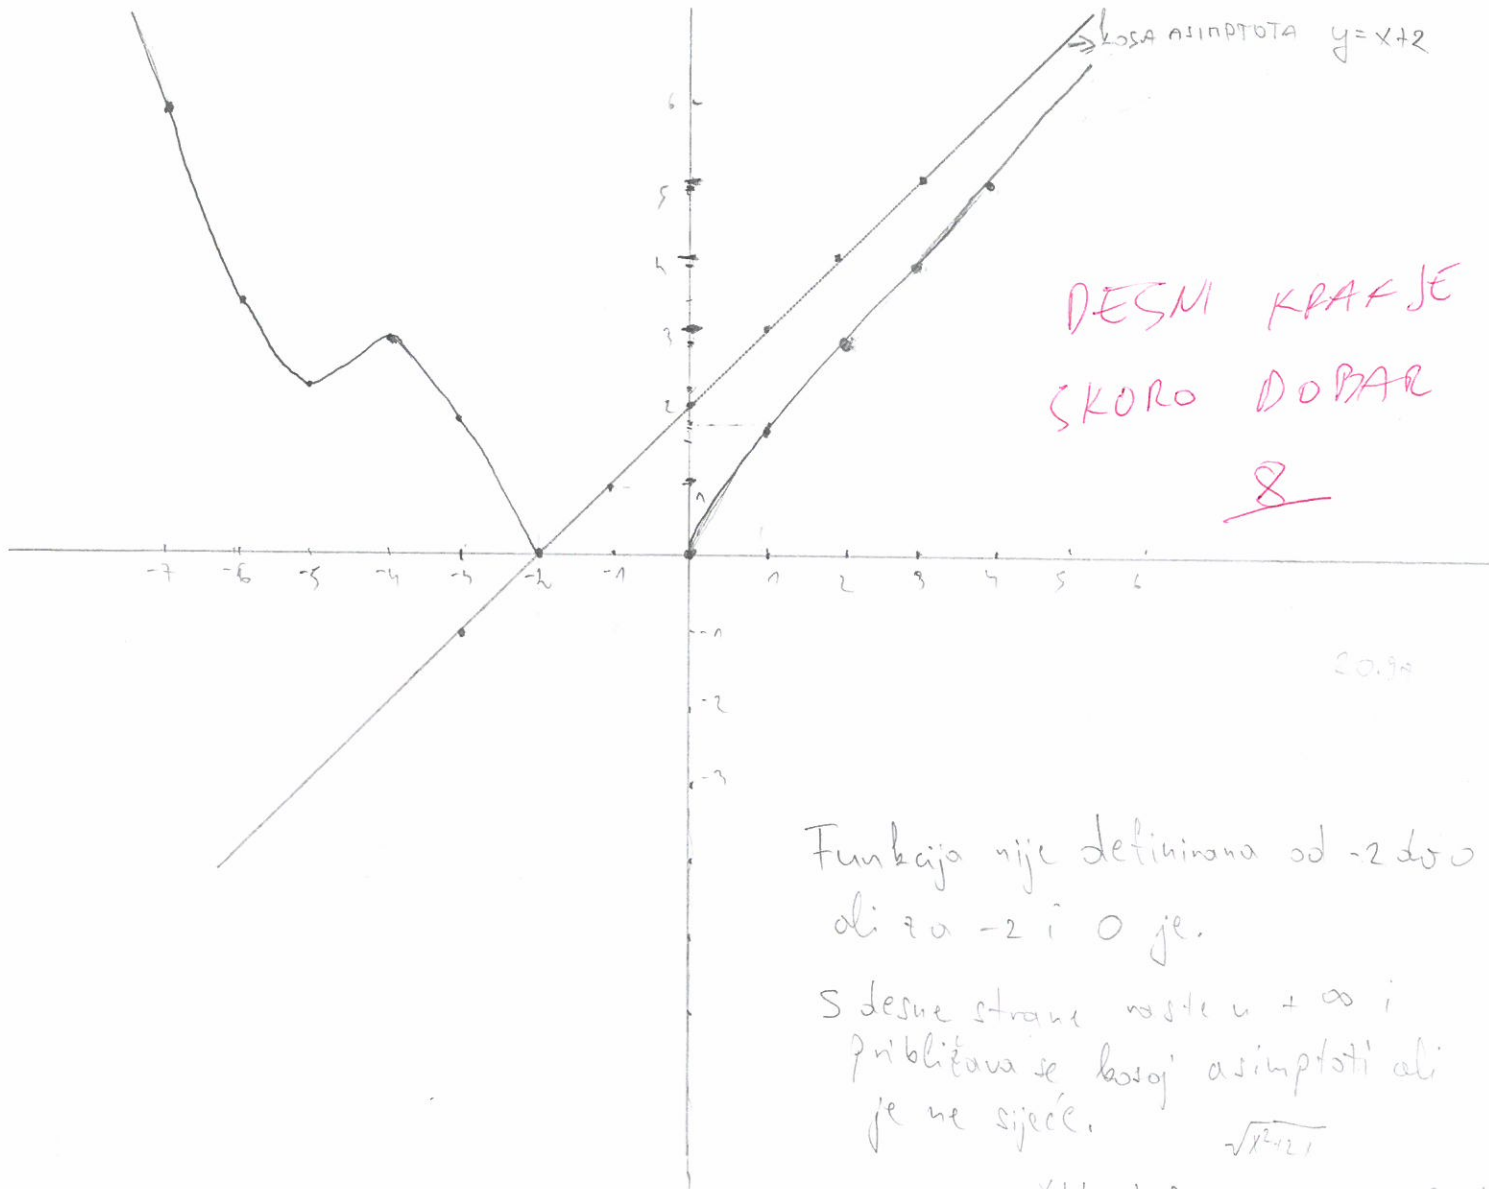 KOSA ASIMPTOTA y = x+2
6
5
4
3
2
1
-7 -6 -5 -4 -4 -2 -1 1 2 3 4 5 6
-1
-2
-3
DESNI KRAK JE
SKORO DOBAR
8
Funkcija nije definirana od -2 do 0
ali za -2 i 0 je.
S desne strane raste u +∞ i
približava se kosoj asimptoti ali
je ne siječe.